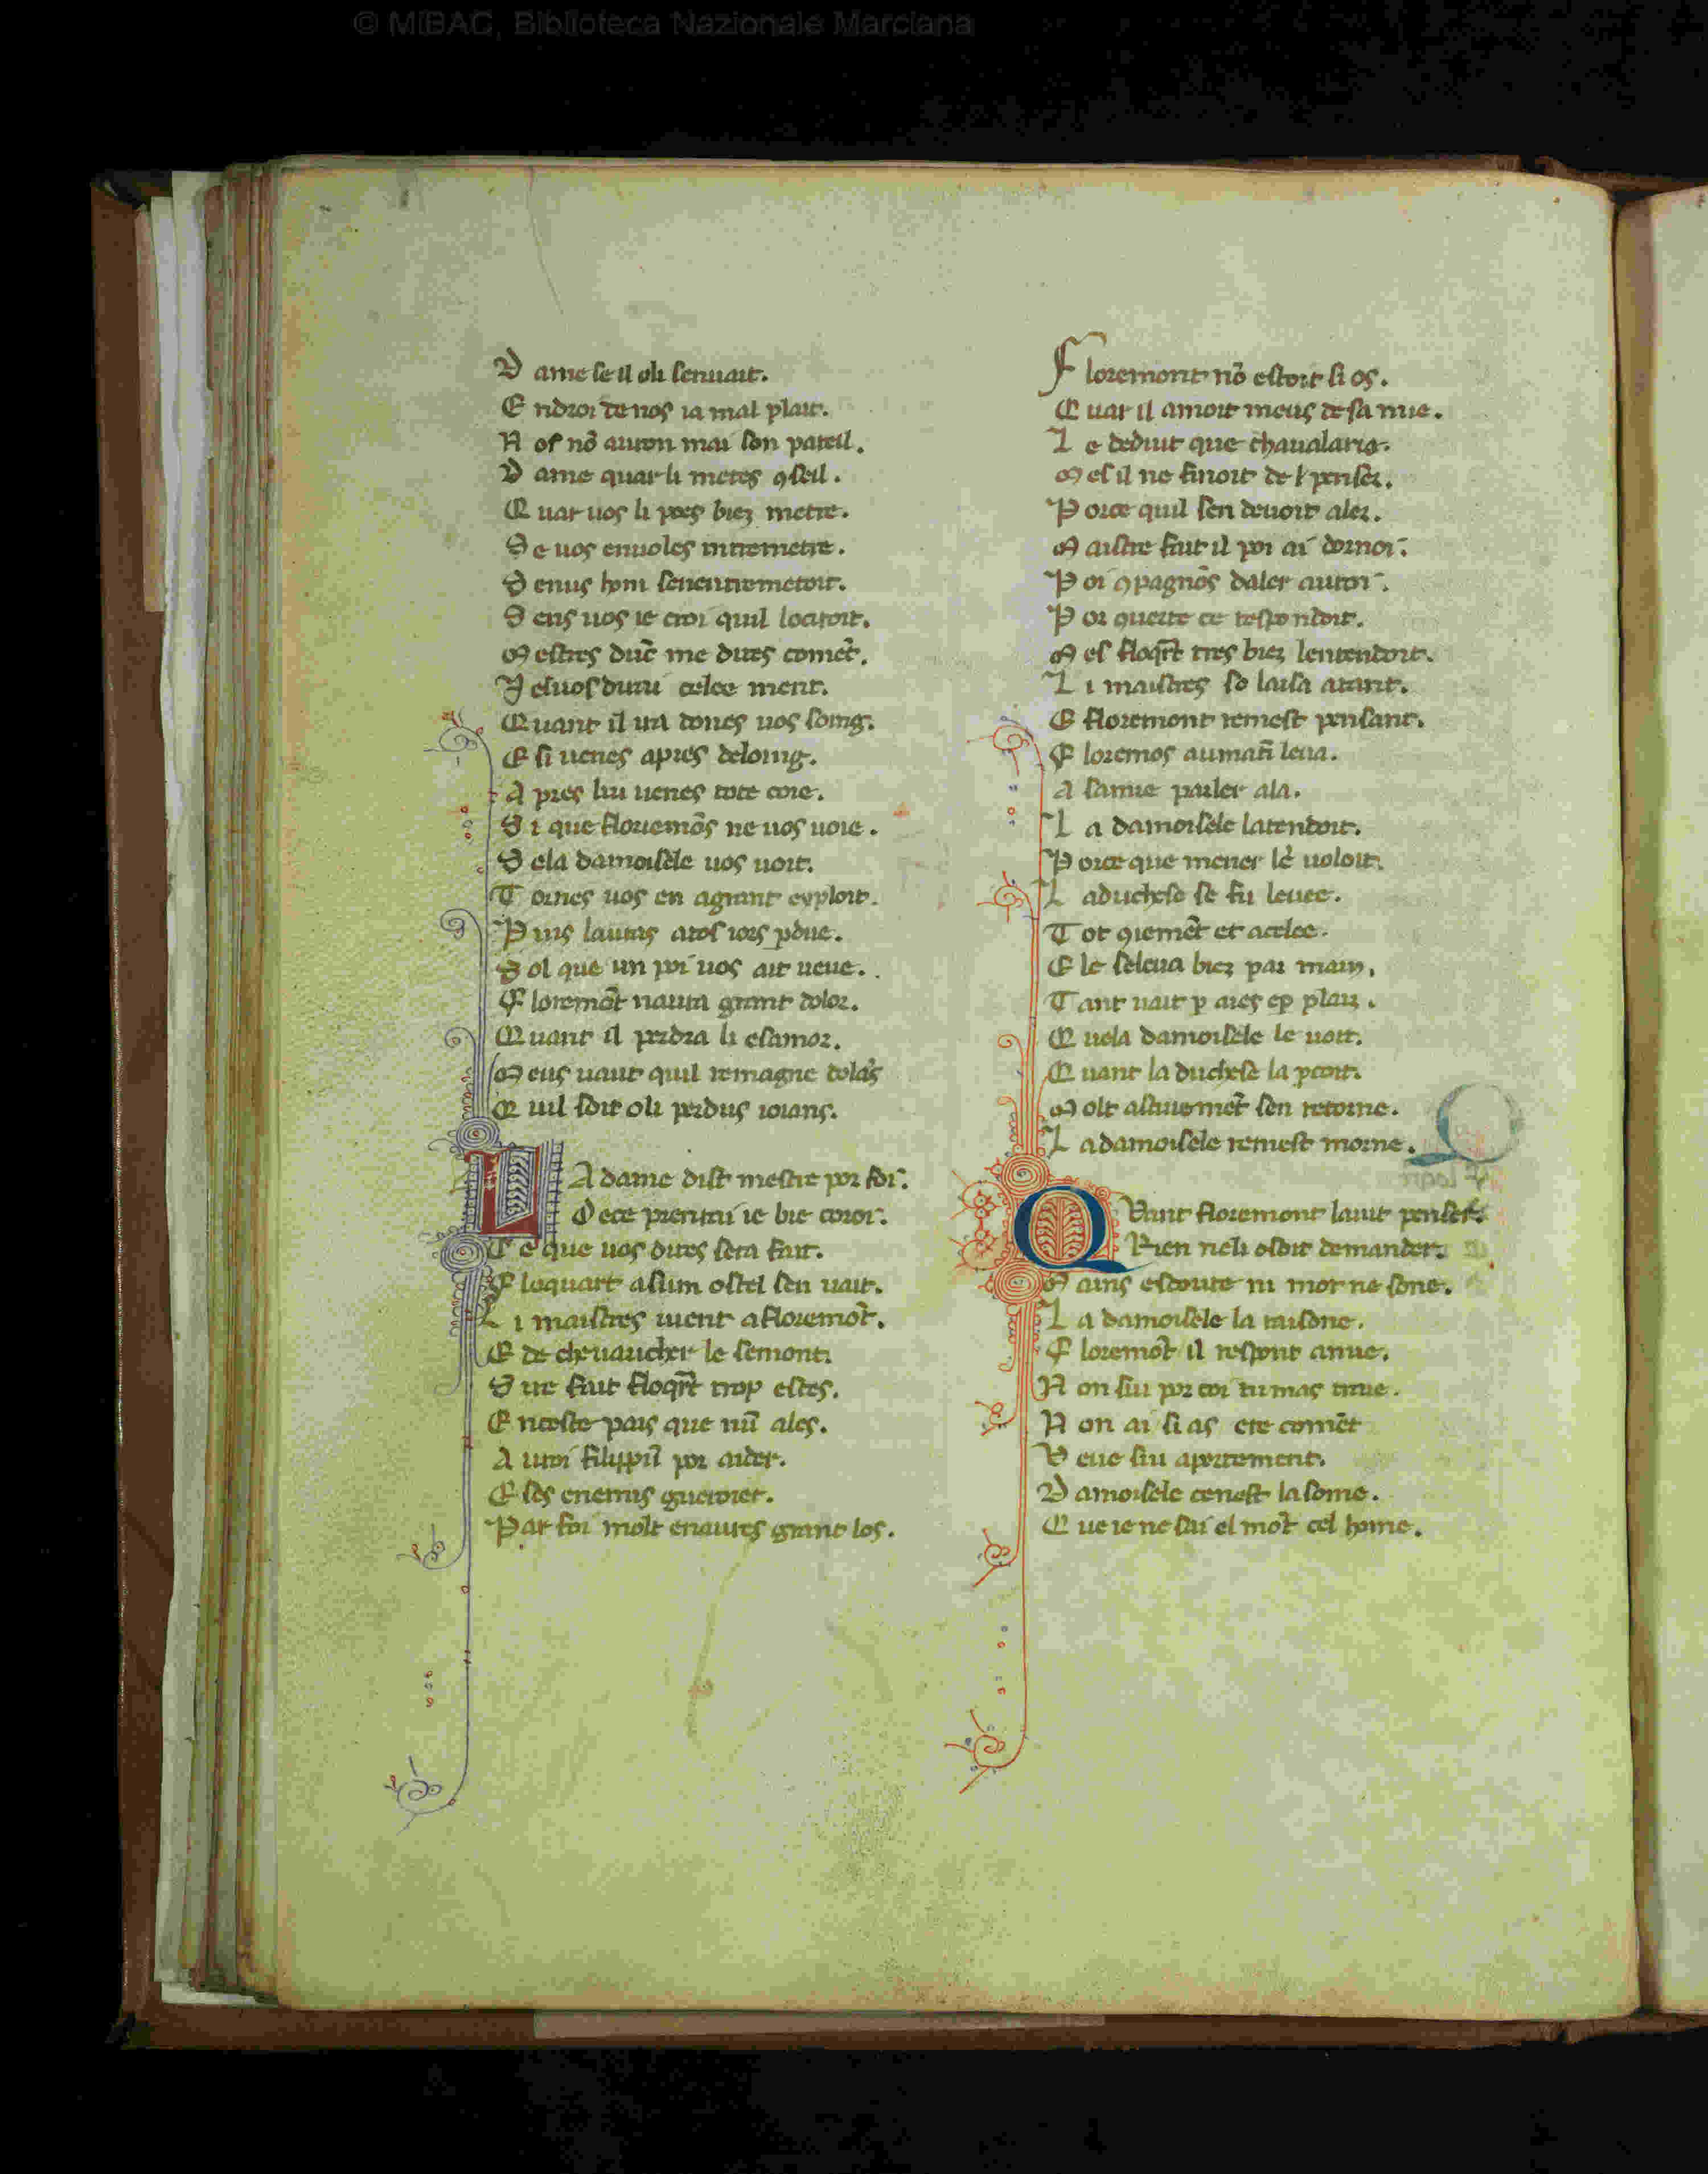 © MiBAC, Biblioteca Nazionale Marciana
D ame se il oli seruait.
E ndroi de nos ia mal plait.
N os nō auron mai son pareil.
D ame quar li metes ꝯseil.
Q uar uos li poes biez metre.
Se uos enuoles intremetre.
S enus hom senentremetoit.
S ens uos ie croi quil lociroit.
M estres duc̄ me dites comēt.
J esuos dirai celee ment.
Quant il ua dones uos soing.
E si uenes apres deloing.
A pres lui uenes tote coie.
S i que flouemōs ne uos uoie.
S ela damoisele uos uoit.
T ornes uos en agrant exploit.
P uis lauras atos iors ꝑdue.
S ol que un poi uos ait ueue.
F loremōt naura grant dolor.
Quant il perdra li esamor.
M eus uaut quil remagne dolās
Q uil soit oli perdus ioians.
L A dame dist mestre por foi.
D ece prentai ie bie coroi.
C e que uos dites sera fait.
F loquart asum ostel sen uait.
L i maistres uient afloremōt.
E de cheuaucher le semont.
S ire fait floqr̄t trop estes.
E nceste pais que nū ales.
A uroi filippū por aider.
E ses enemis guerroier.
Par foi molt enaures grant los.
F loremont nō estoit si os.
Q uar il amoit meus de sa mie.
L e deduit que chaualaria.
M es il ne finoit de l penser.
P orce quil sen deuoit aler.
M aistre fait il poi ai dornoi.
P oi ꝯpagnōs daler autoi.
P or querre ce respondoit.
M es floqr̄t tres biez lentendoit.
L i maistres so laisa atant.
E floremont remest pensant.
F loremos aumatī leua.
A samie parler ala.
L a damoisele latendoit.
P orce que mener lē uoloit.
L aduchese se fu leuee.
T ot ꝯiemēt et acelee.
E le seleua biez par main.
T ant uait ꝑ aies eꝑ plain.
Q uela damoisele le uoit.
Q uant la duchese la ꝑcoit.
M olt astiuemēt sen retorne.
L adamoisele remest morne.
Q Uant floremont lauit penser.
Rien neli osoit demander.
M ains escoute ni mot ne sone.
L a damoisele la raisone.
F loremōt il respont amie.
N on sui por coi tumas traie.
N on ai si as ete comēt
V eue sui apertement.
D amoisele cenest lasome.
Q ue ie ne sai el mōt cel home.